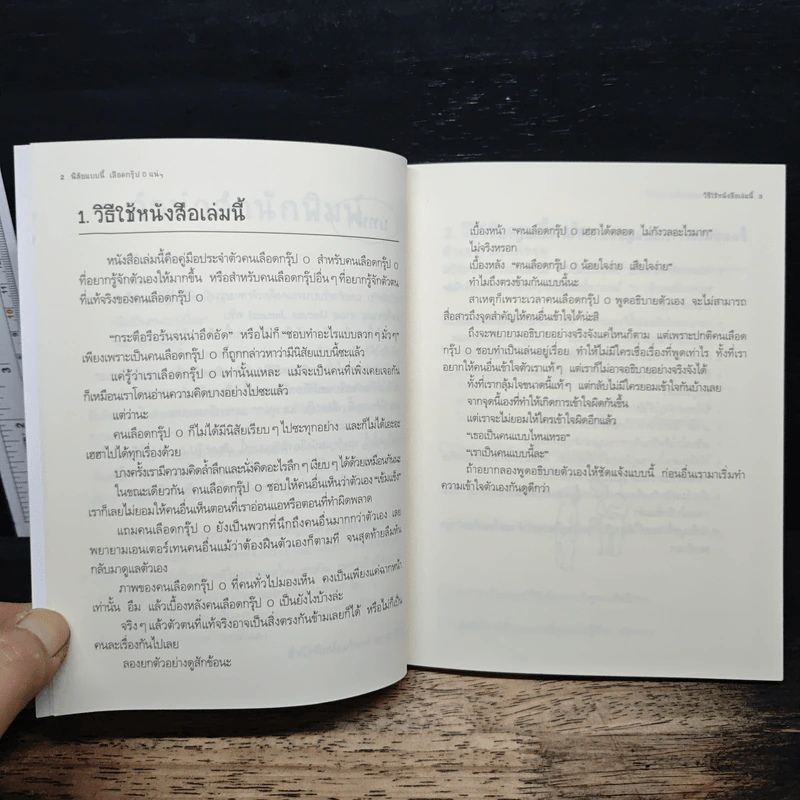 2 นิสัยแบบนี้ เลือดกรุ๊ป O แน่ๆ
1. วิธีใช้หนังสือเล่มนี้
หนังสือเล่มนี้คือคู่มือประจำตัวคนเลือดกรุ๊ป O สำหรับคนเลือดกรุ๊ป O
ที่อยากรู้จักตัวเองให้มากขึ้น หรือสำหรับคนเลือดกรุ๊ปอื่นๆ ที่อยากรู้จักตัวตน
ที่แท้จริงของคนเลือดกรุ๊ป O
"กระตือรือร้นจนน่าอึดอัด" หรือไม่ก็ "ชอบทำอะไรแบบลวกๆ มั่วๆ"
เพียงเพราะเป็นคนเลือดกรุ๊ป O ก็ถูกกล่าวหาว่ามีนิสัยแบบนี้ซะแล้ว
แค่รู้ว่าเราเลือดกรุ๊ป O เท่านั้นแหละ แม้จะเป็นคนที่เพิ่งเคยเจอกัน
ก็เหมือนเราโดนอ่านความคิดบางอย่างไปซะแล้ว
แต่ว่านะ
คนเลือดกรุ๊ป O ก็ไม่ได้มีนิสัยเรียบๆ ไปซะทุกอย่าง และก็ไม่ได้เฮอะฮะ
เฮฮาไปได้ทุกเรื่องด้วย
บางครั้งเรามีความคิดล้ำลึกและนั่งคิดอะไรลึกๆ เงียบๆ ได้ด้วยเหมือนกันนะ
ในขณะเดียวกัน คนเลือดกรุ๊ป O ชอบให้คนอื่นเห็นว่าตัวเอง "เข้มแข็ง"
เราก็เลยไม่ยอมให้คนอื่นเห็นตอนที่เราอ่อนแอหรือตอนที่ทำผิดพลาด
แถมคนเลือดกรุ๊ป O ยังเป็นพวกที่นึกถึงคนอื่นมากกว่าตัวเอง เลย
พยายามเอนเตอร์เทนคนอื่นแม้ว่าต้องฝืนตัวเองก็ตามที จนสุดท้ายลืมหัน
กลับมาดูแลตัวเอง
ภาพของคนเลือดกรุ๊ป O ที่คนทั่วไปมองเห็น คงเป็นเพียงแค่ฉากหน้า
เท่านั้น อืม แล้วเบื้องหลังคนเลือดกรุ๊ป O เป็นยังไงบ้างล่ะ
จริงๆ แล้วตัวตนที่แท้จริงอาจเป็นสิ่งตรงกันข้ามเลยก็ได้ หรือไม่ก็เป็น
คนละเรื่องกันไปเลย
ลองยกตัวอย่างดูสักข้อนะ
วิธีใช้หนังสือเล่มนี้ 3
เบื้องหน้า "คนเลือดกรุ๊ป O เฮฮาได้ตลอด ไม่กังวลอะไรมาก"
ไม่จริงหรอก
เบื้องหลัง "คนเลือดกรุ๊ป O น้อยใจง่าย เสียใจง่าย"
ทำไมถึงตรงข้ามกันแบบนี้นะ
สาเหตุก็เพราะเวลาคนเลือดกรุ๊ป O พูดอธิบายตัวเอง จะไม่สามารถ
สื่อสารถึงจุดสำคัญให้คนอื่นเข้าใจได้น่ะสิ
ถึงจะพยายามอธิบายอย่างจริงจังแค่ไหนก็ตาม แต่เพราะปกติคนเลือด
กรุ๊ป O ชอบทำเป็นเล่นอยู่เรื่อย ทำให้ไม่มีใครเชื่อเรื่องที่พูดเท่าไร ทั้งที่เรา
อยากให้คนอื่นเข้าใจตัวเราแท้ๆ แต่เราก็ไม่อาจอธิบายอย่างจริงจังได้
ทั้งที่เรากลุ้มใจขนาดนี้แท้ๆ แต่กลับไม่มีใครยอมเข้าใจกันบ้างเลย
จากจุดนี้เองที่ทำให้เกิดการเข้าใจผิดกันขึ้น
แต่เราจะไม่ยอมให้ใครเข้าใจผิดอีกแล้ว
"เธอเป็นคนแบบไหนเหรอ"
"เราเป็นคนแบบนี้ละ"
ถ้าอยากลองพูดอธิบายตัวเองให้ชัดแจ้งแบบนี้ ก่อนอื่นเรามาเริ่มทำ
ความเข้าใจตัวเองกันดูดีกว่า